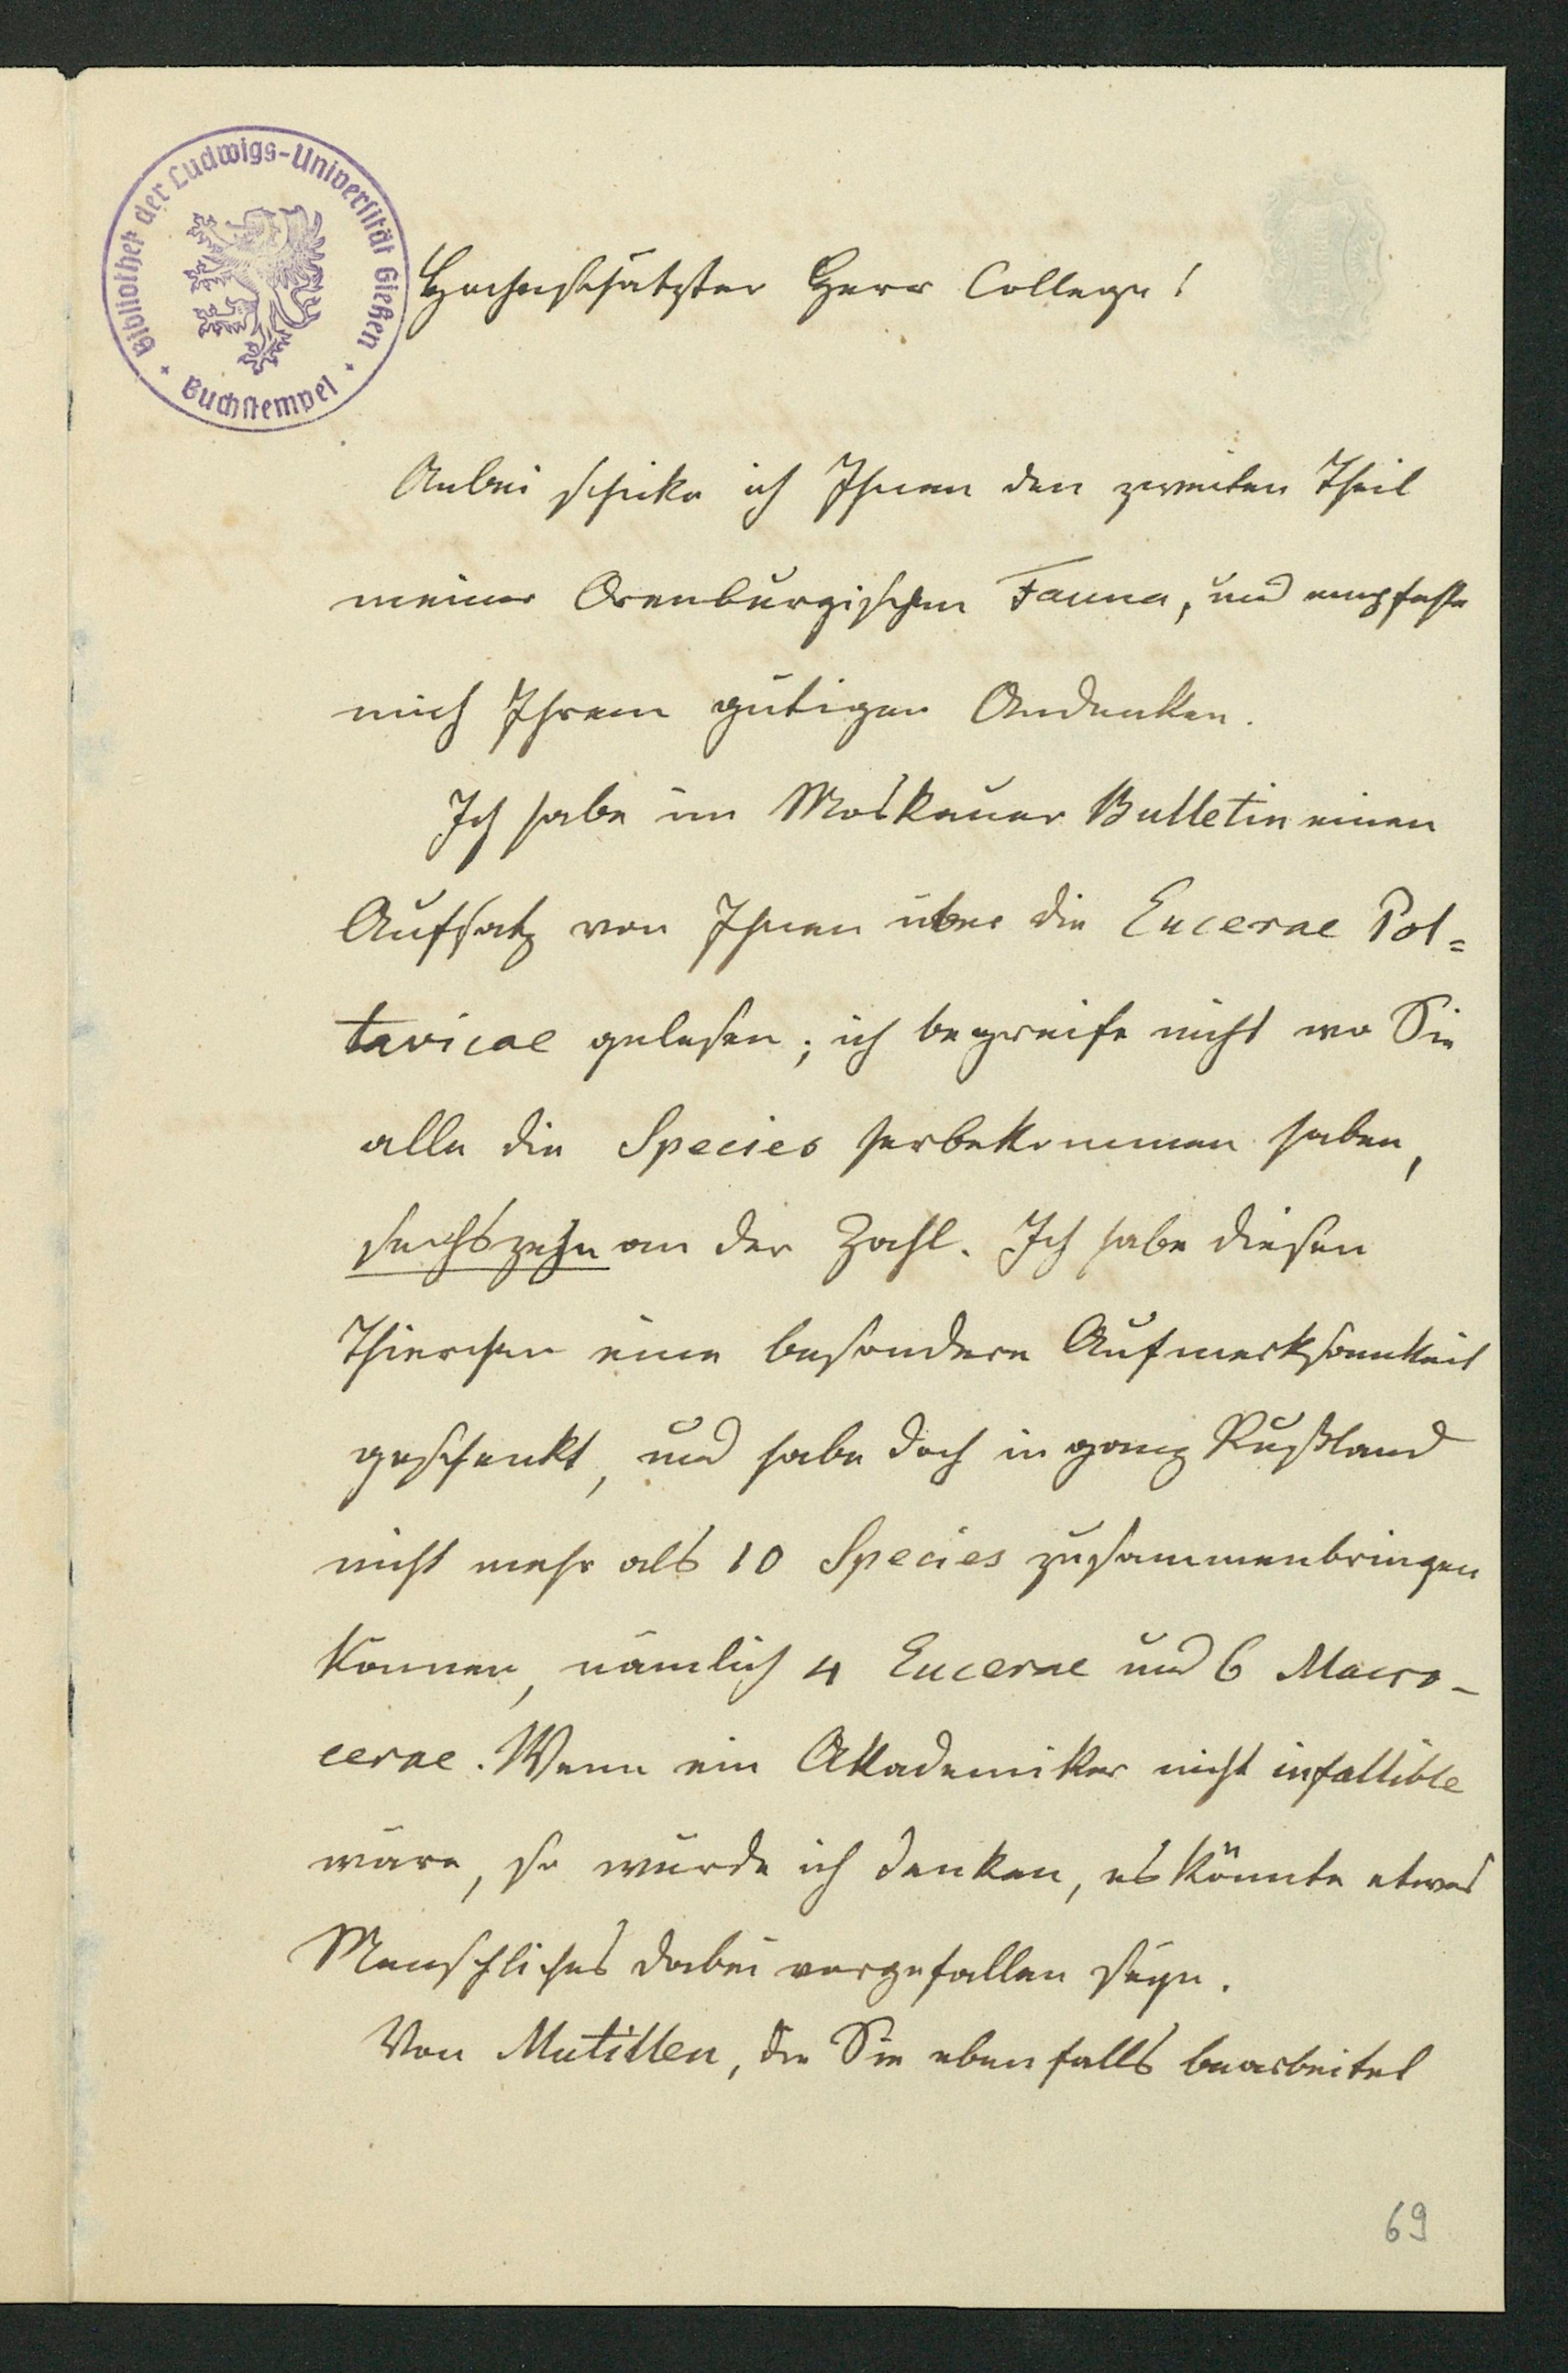 Bibliothek der Ludwigs-Universität Gießen
Buchstempel
Hochgeschätzter Herr College!
Anbei schicke ich Ihnen den zweiten Theil
meiner Orenburgischen Fauna, und empfehle
mich Ihrem gütigen Andenken.
Ich habe im Moskauer Bulletin einen
Aufsatz von Ihnen über die Eucerae Pol=
tavicae gelesen; ich begreife nicht wo Sie
alle die Species herbekommen haben,
sechszehn an der Zahl. Ich habe diesen
Thierchen eine besondere Aufmerksamkeit
geschenkt, und habe doch in ganz Rußland
nicht mehr als 10 Species zusammenbringen
können, nämlich 4 Eucerae und 6 Macro-
cerae. Wenn ein Akademiker nicht infallible
wäre, so würde ich denken, es könnte etwas
Menschliches dabei vorgefallen seyn.
Von Mutillen, die Sie ebenfalls bearbeitet
69